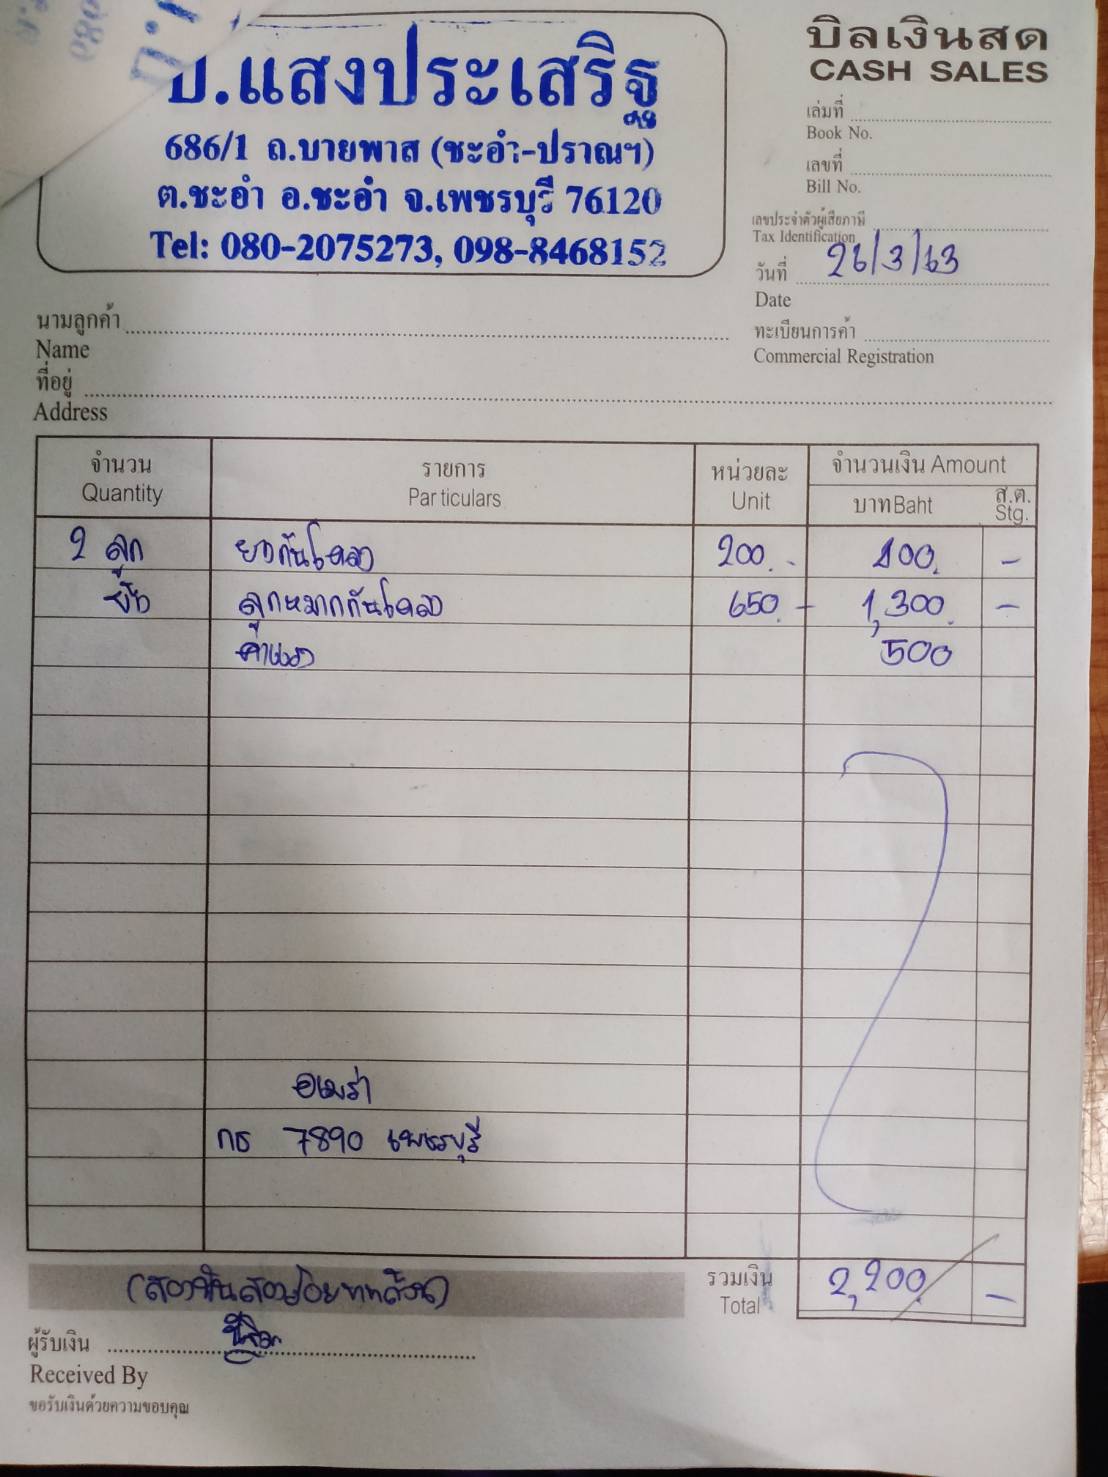 บิลเงินสด
CASH SALES
ป.แสงประเสริฐ
686/1 ถ.บายพาส (ชะอำ-ปราณฯ)
ต.ชะอำ อ.ชะอำ จ.เพชรบุรี 76120
Tel: 080-2075273, 098-8468152
เล่มที่
Book No.
เลขที่
Bill No.
เลขประจำตัวผู้เสียภาษี
Tax Identification
วันที่ 26/3/63
Date
ทะเบียนการค้า
Commercial Registration
นามลูกค้า
Name
ที่อยู่
Address
จำนวน รายการ หน่วยละ จำนวนเงิน Amount
Quantity Particulars Unit บาท Baht ส.ต. Stg.
2 ลูก ยางกันโคลง 200.- 400. -
ลูกหมากกันโคลง 650.- 1,300. -
ค่าแรง 500
กธ 7890 เพชรบุรี
(สองพันสองร้อยบาทถ้วน) รวมเงิน 2,200 -
Total
ผู้รับเงิน
Received By
ขอรับเงินด้วยความขอบคุณ